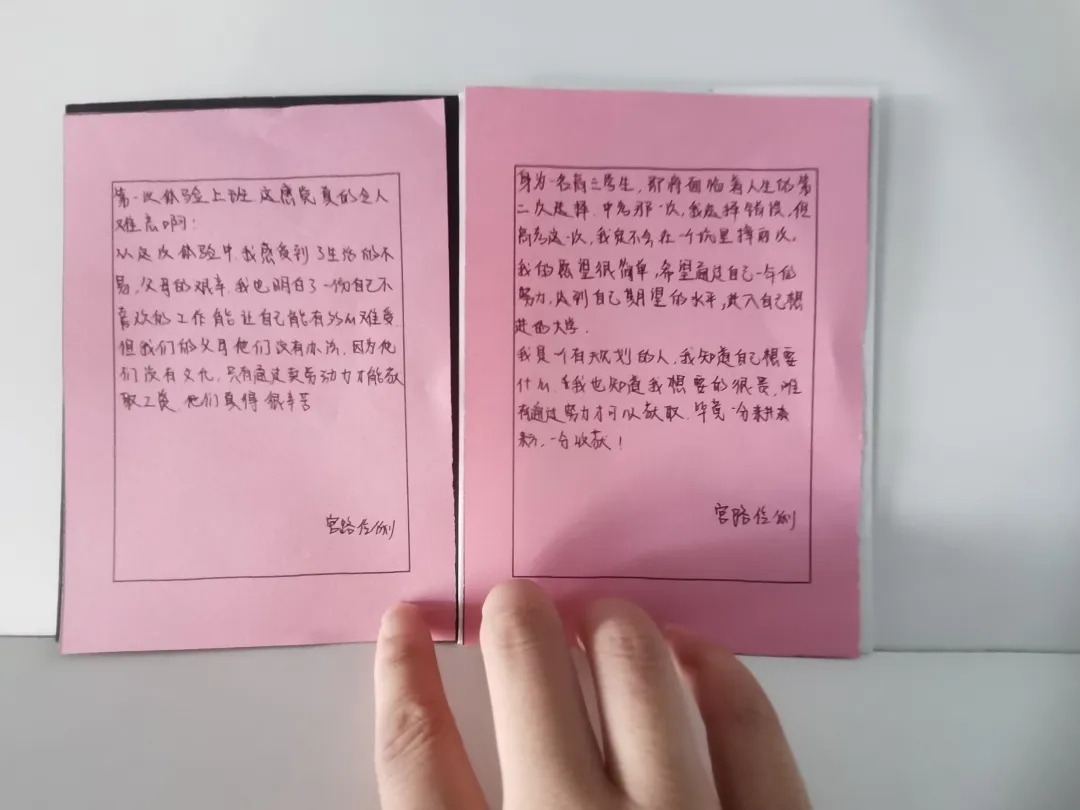 第一次体验上班 这感觉真的令人
难忘啊！
从这次体验中，我感受到了生活的不
易，父母的艰辛，我也明白了一份自己不
喜欢的工作能让自己能有多么难受
但我们的父母他们没有办法，因为他
们没有文化，只有通过卖劳动力才能获
取工资，他们真得很辛苦
宫路佐俐
身为一名高三学生，即将面临着人生的第
二次选择，中考那一次，我选择错误，但
高考这一次，我就不会在一个坑里摔两次。
我的愿望很简单，希望通过自己一年的
努力，达到自己期望的水平，进入自己想
进的大学．
我是一个有规划的人，我知道自己想要
什么，我也知道我想要的很贵，唯
有通过努力才可以获取．毕竟一分耕
，一分收获！
宫路佐俐